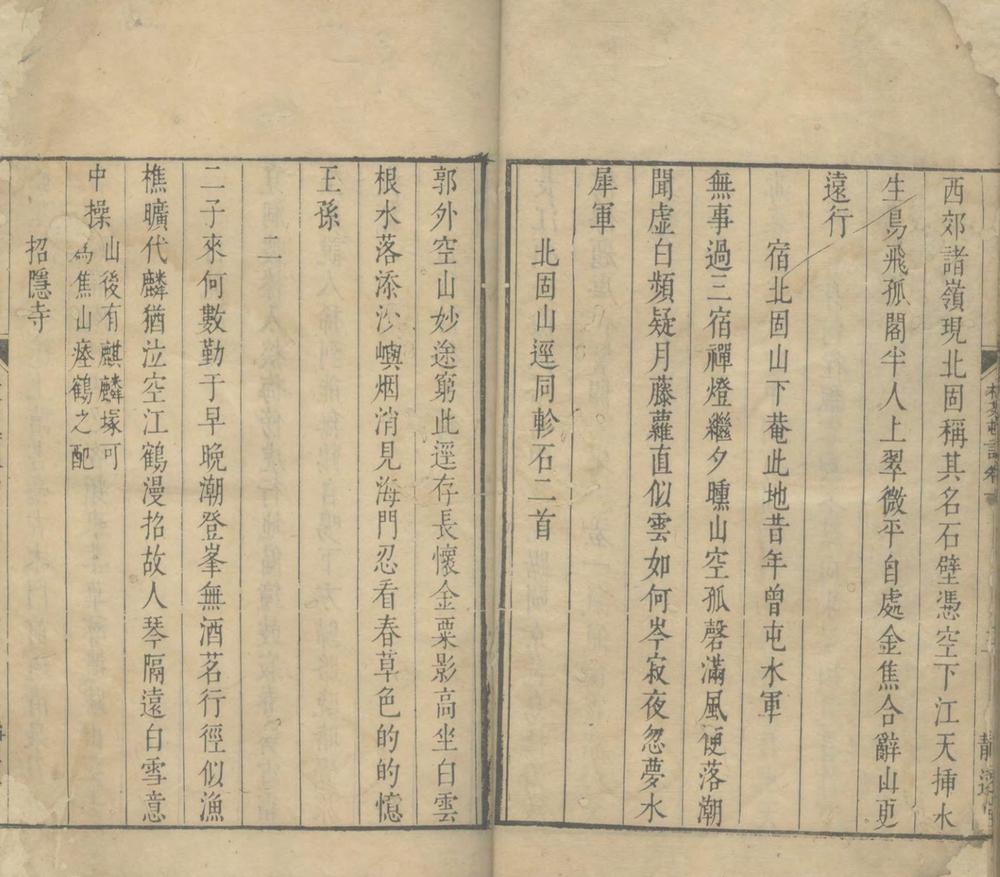 西郊諸嶺現北固稱其名石壁憑空下江天揷水
生鳥飛孤閣半人上翠微平自處金焦合辭山更
遠行
宿北固山下菴此地昔年曾屯水軍
無事過三宿禪燈繼夕曛山空孤磬滿風便落潮
聞虛白頻疑月藤蘿直似雲如何岑寂夜忽夢水
犀軍
北固山逕同軫石二首
郭外空山妙途窮此逕存長懷金粟影高坐白雲
根水落添沙嶼烟消見海門忍看春草色的的憶
王孫
二
二子來何數勤于早晚潮登峯無酒茗行徑似漁
樵曠代麟猶泣空江鶴漫招故人琴隔遠白雪意
中操
山後有麒麟塚可
為焦山瘞鶴之配
招隱寺